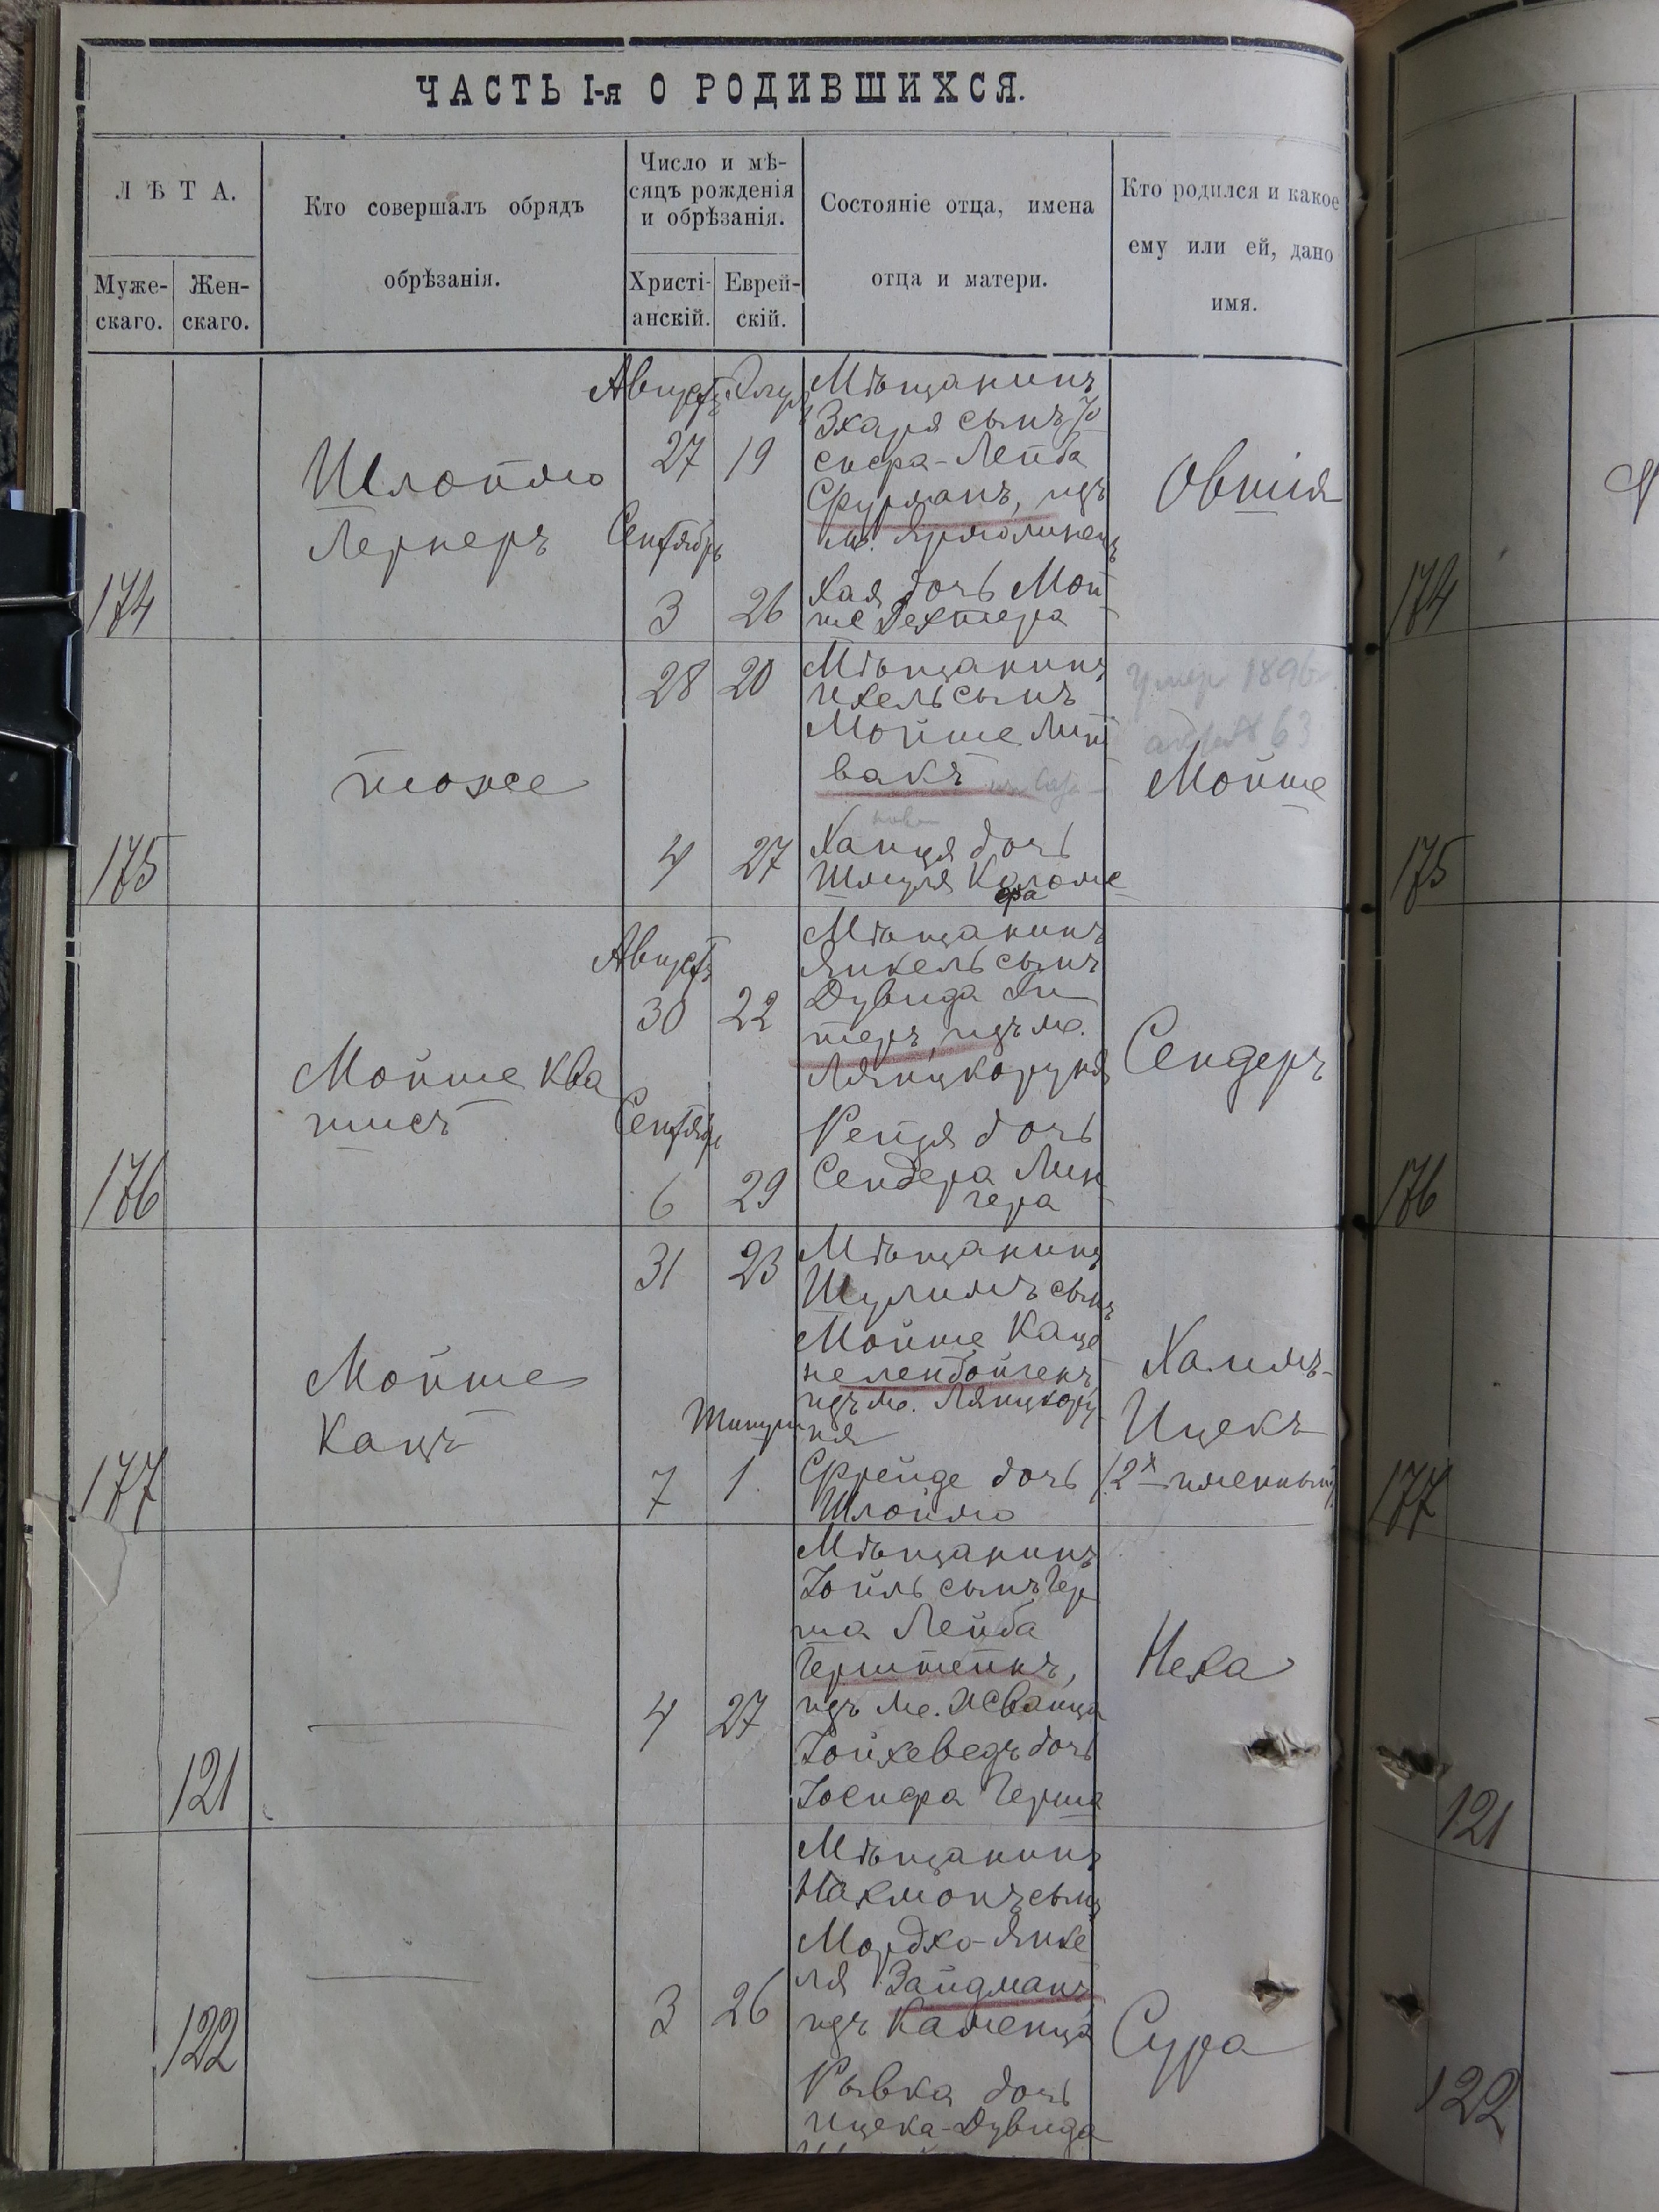 ЧАСТЬ I-я О РОДИВШИХСЯ.
ЛѢТА.
Муже-
скаго.
Жен-
скаго.
Кто совершалъ обрядъ
обрѣзанія.
Число и мѣ-
сяцъ рожденія
и обрѣзанія.
Христі-
анскій.
Еврей-
скій.
Состояніе отца, имена
отца и матери.
Кто родился и какое
ему или ей, дано
имя.
174
Шлоймо
Лернеръ
Августъ
27 19
Сентябрь
3 26
Мѣщанинъ
Зхаря сынъ Іо
сифа-Лейба
Фурманъ, изъ
м. Ярмолинецъ
Хая дочь Мой
ше Рехтера
Овшія
174
175
тоже
28 20
4 27
Мѣщанинъ
Ихель сынъ
Мойше Лит
вакъ
Ханця дочь
Шмуля Коломе
ера
умер 1896
Мойше
175
176
Мойше Ква
шисъ
Августъ
30 22
Сентябрь
6 29
Мѣщанинъ
Янкель сынъ
Дувида
изъ м.
Лянцкоруня
Рейзя дочь
Сендера Лин
гера
Сендеръ
176
177
Мойше
Кацъ
31 23
7 1
Мѣщанинъ
Шулимъ сынъ
Мойше Каце
неленбойгенъ
изъ м. Лянцкору
ня
Фрейде дочь
Шлоймо
Хаимъ-
Ицекъ
(2х именный)
177
121
4 27
Мѣщанинъ
Іойль сынъ Гер
ша Лейба
Герштейнъ,
изъ м. Жванца
Іойхеведъ дочь
Іосифа Герша
Неха
121
122
3 26
Мѣщанинъ
Нахмонъ сынъ
Мордко-Янке
ля Зайдманъ
изъ Каменца
Рывка дочь
Ицека-Дувида
Сура
122